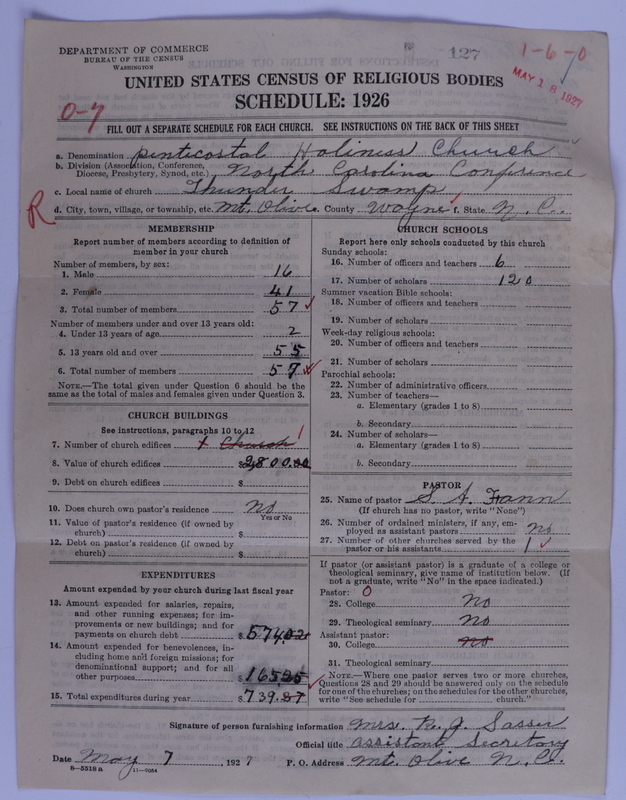 DEPARTMENT OF COMMERCE
BUREAU OF THE CENSUS
WASHINGTON
127
1-6-0
MAY 18 1927
UNITED STATES CENSUS OF RELIGIOUS BODIES
SCHEDULE: 1926
0-7
FILL OUT A SEPARATE SCHEDULE FOR EACH CHURCH. SEE INSTRUCTIONS ON THE BACK OF THIS SHEET
a. Denomination Penticostal Holiness Church
b. Division (Association, Conference, Diocese, Presbytery, Synod, etc.) North Carolina Conference
c. Local name of church Thunder Swamp
R
d. City, town, village, or township, etc. Mt. Olive. County Wayne f. State N. C.
MEMBERSHIP
Report number of members according to definition of
member in your church
Number of members, by sex:
1. Male 16
2. Female 41
3. Total number of members 57
Number of members under and over 13 years old:
4. Under 13 years of age 2
5. 13 years old and over 55
6. Total number of members 57
NOTE.—The total given under Question 6 should be the
same as the total of males and females given under Question 3.
CHURCH BUILDINGS
See instructions, paragraphs 10 to 12
7. Number of church edifices 1 Church 1
8. Value of church edifices $2,800.00
9. Debt on church edifices $
10. Does church own pastor's residence No
Yes or No
11. Value of pastor's residence (if owned by
church) $
12. Debt on pastor's residence (if owned by
church) $
EXPENDITURES
Amount expended by your church during last fiscal year
13. Amount expended for salaries, repairs,
and other running expenses; for im-
provements or new buildings; and for
payments on church debt $574.02
14. Amount expended for benevolences, in-
cluding home and foreign missions; for
denominational support; and for all
other purposes $165.25
15. Total expenditures during year $739.27
CHURCH SCHOOLS
Report here only schools conducted by this church
Sunday schools:
16. Number of officers and teachers 6
17. Number of scholars 120
Summer vacation Bible schools:
18. Number of officers and teachers
19. Number of scholars
Week-day religious schools:
20. Number of officers and teachers
21. Number of scholars
Parochial schools:
22. Number of administrative officers
23. Number of teachers—
a. Elementary (grades 1 to 8)
b. Secondary
24. Number of scholars—
a. Elementary (grades 1 to 8)
b. Secondary
PASTOR
25. Name of pastor S. A. Fann
(If church has no pastor, write "None")
26. Number of ordained ministers, if any, em-
ployed as assistant pastors No
27. Number of other churches served by the
pastor or his assistants 1
If pastor (or assistant pastor) is a graduate of a college or
theological seminary, give name of institution below. (If
not a graduate, write "No" in the space indicated.)
Pastor: 0
28. College No
29. Theological seminary No
Assistant pastor:
30. College No
31. Theological seminary
NOTE.—Where one pastor serves two or more churches,
Questions 28 and 29 should be answered only on the schedule
for one of the churches; on the schedules for the other churches,
write "See schedule for church."
Signature of person furnishing information Mrs. R. J. Sasser
Official title assistant Secretary
Date May 7, 1927 P. O. Address Mt. Olive N. C.
8—5518 a 11—9054